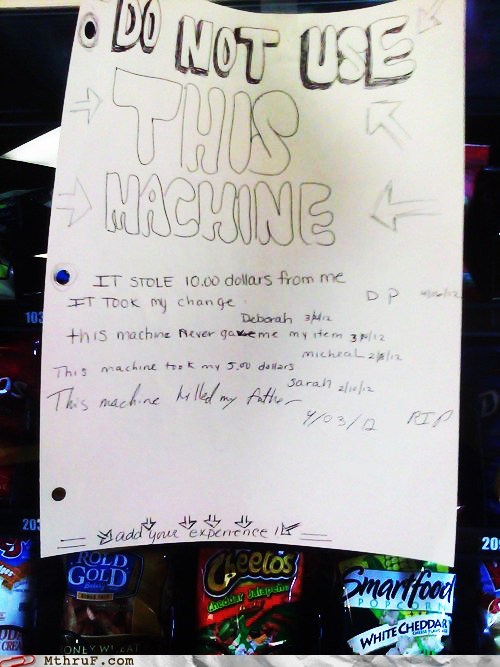 DO NOT USE
THIS
MACHINE
IT STOLE 10.00 dollars from me
DP
IT TOOK my change.
Deborah
this machine Never gave me my item
micheal
This machine took my 5.00 dollars
Sarah 2/11/12
This machine killed my father
4/03/12 RIP
add your experience!
103
203
20
ROLD
GOLD
HONEY WHEAT
Cheetos
Cheddar Jalapeño
Smartfood
POPCORN
WHITE CHEDDAR
MThruF.com